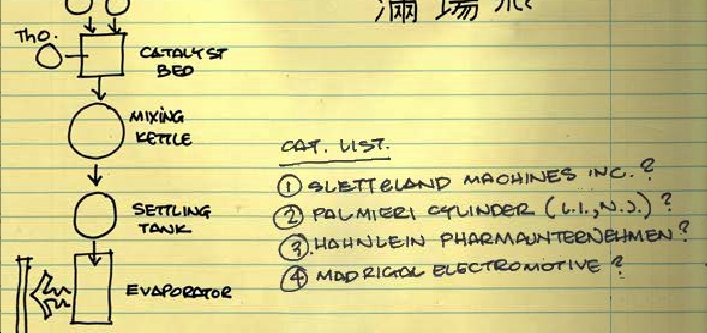 Tho.
CATALYST
BED
MIXING
KETTLE
SETTLING
TANK
EVAPORATOR
CAT. LIST.
① SLETTELAND MACHINES INC.?
② PALMIERI CYLINDER (L.I., N.J.)?
③ HAHNLEIN PHARMAUNTERNEHMEN?
④ MADRIGAL ELECTROMOTIVE?